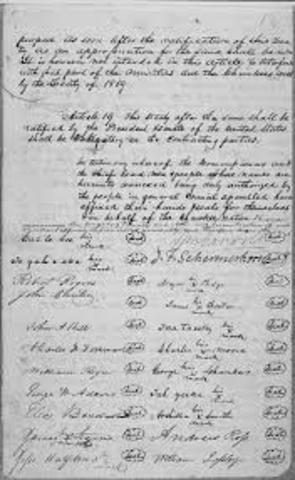 purpose as soon after the ratification of this Trea
ty as an appropriation for the same shall be made
It is however not intended in this Article to interfere
with that part of the annuities due the Cherokees
by the Treaty of 1819.
Article 19. This treaty after the same shall be
ratified by the President & Senate of the United States
shall be obligatory on the contracting parties.
In testimony whereof the Commissioners and
the Chiefs head men & people whose names are
hereunto annexed being duly authorized by
the people in general Council assembled have
affixed their hands & seals for themselves
and on behalf of the Cherokee Nation
his mark
J. F. Schermerhorn
Te gah e ske his mark
Robert Rogers
John
Major Ridge
James his Foster mark
John A. Bell
Tesa
Charles F. Foreman
Charles his Moore mark
William Rogers
George his Chambers mark
George W. Adair
Tah yeske his mark
Elias Boudinot
Archilla his Smith mark
James Starr
Andrew Ross
Jesse Halfbreed mark
William Lassley